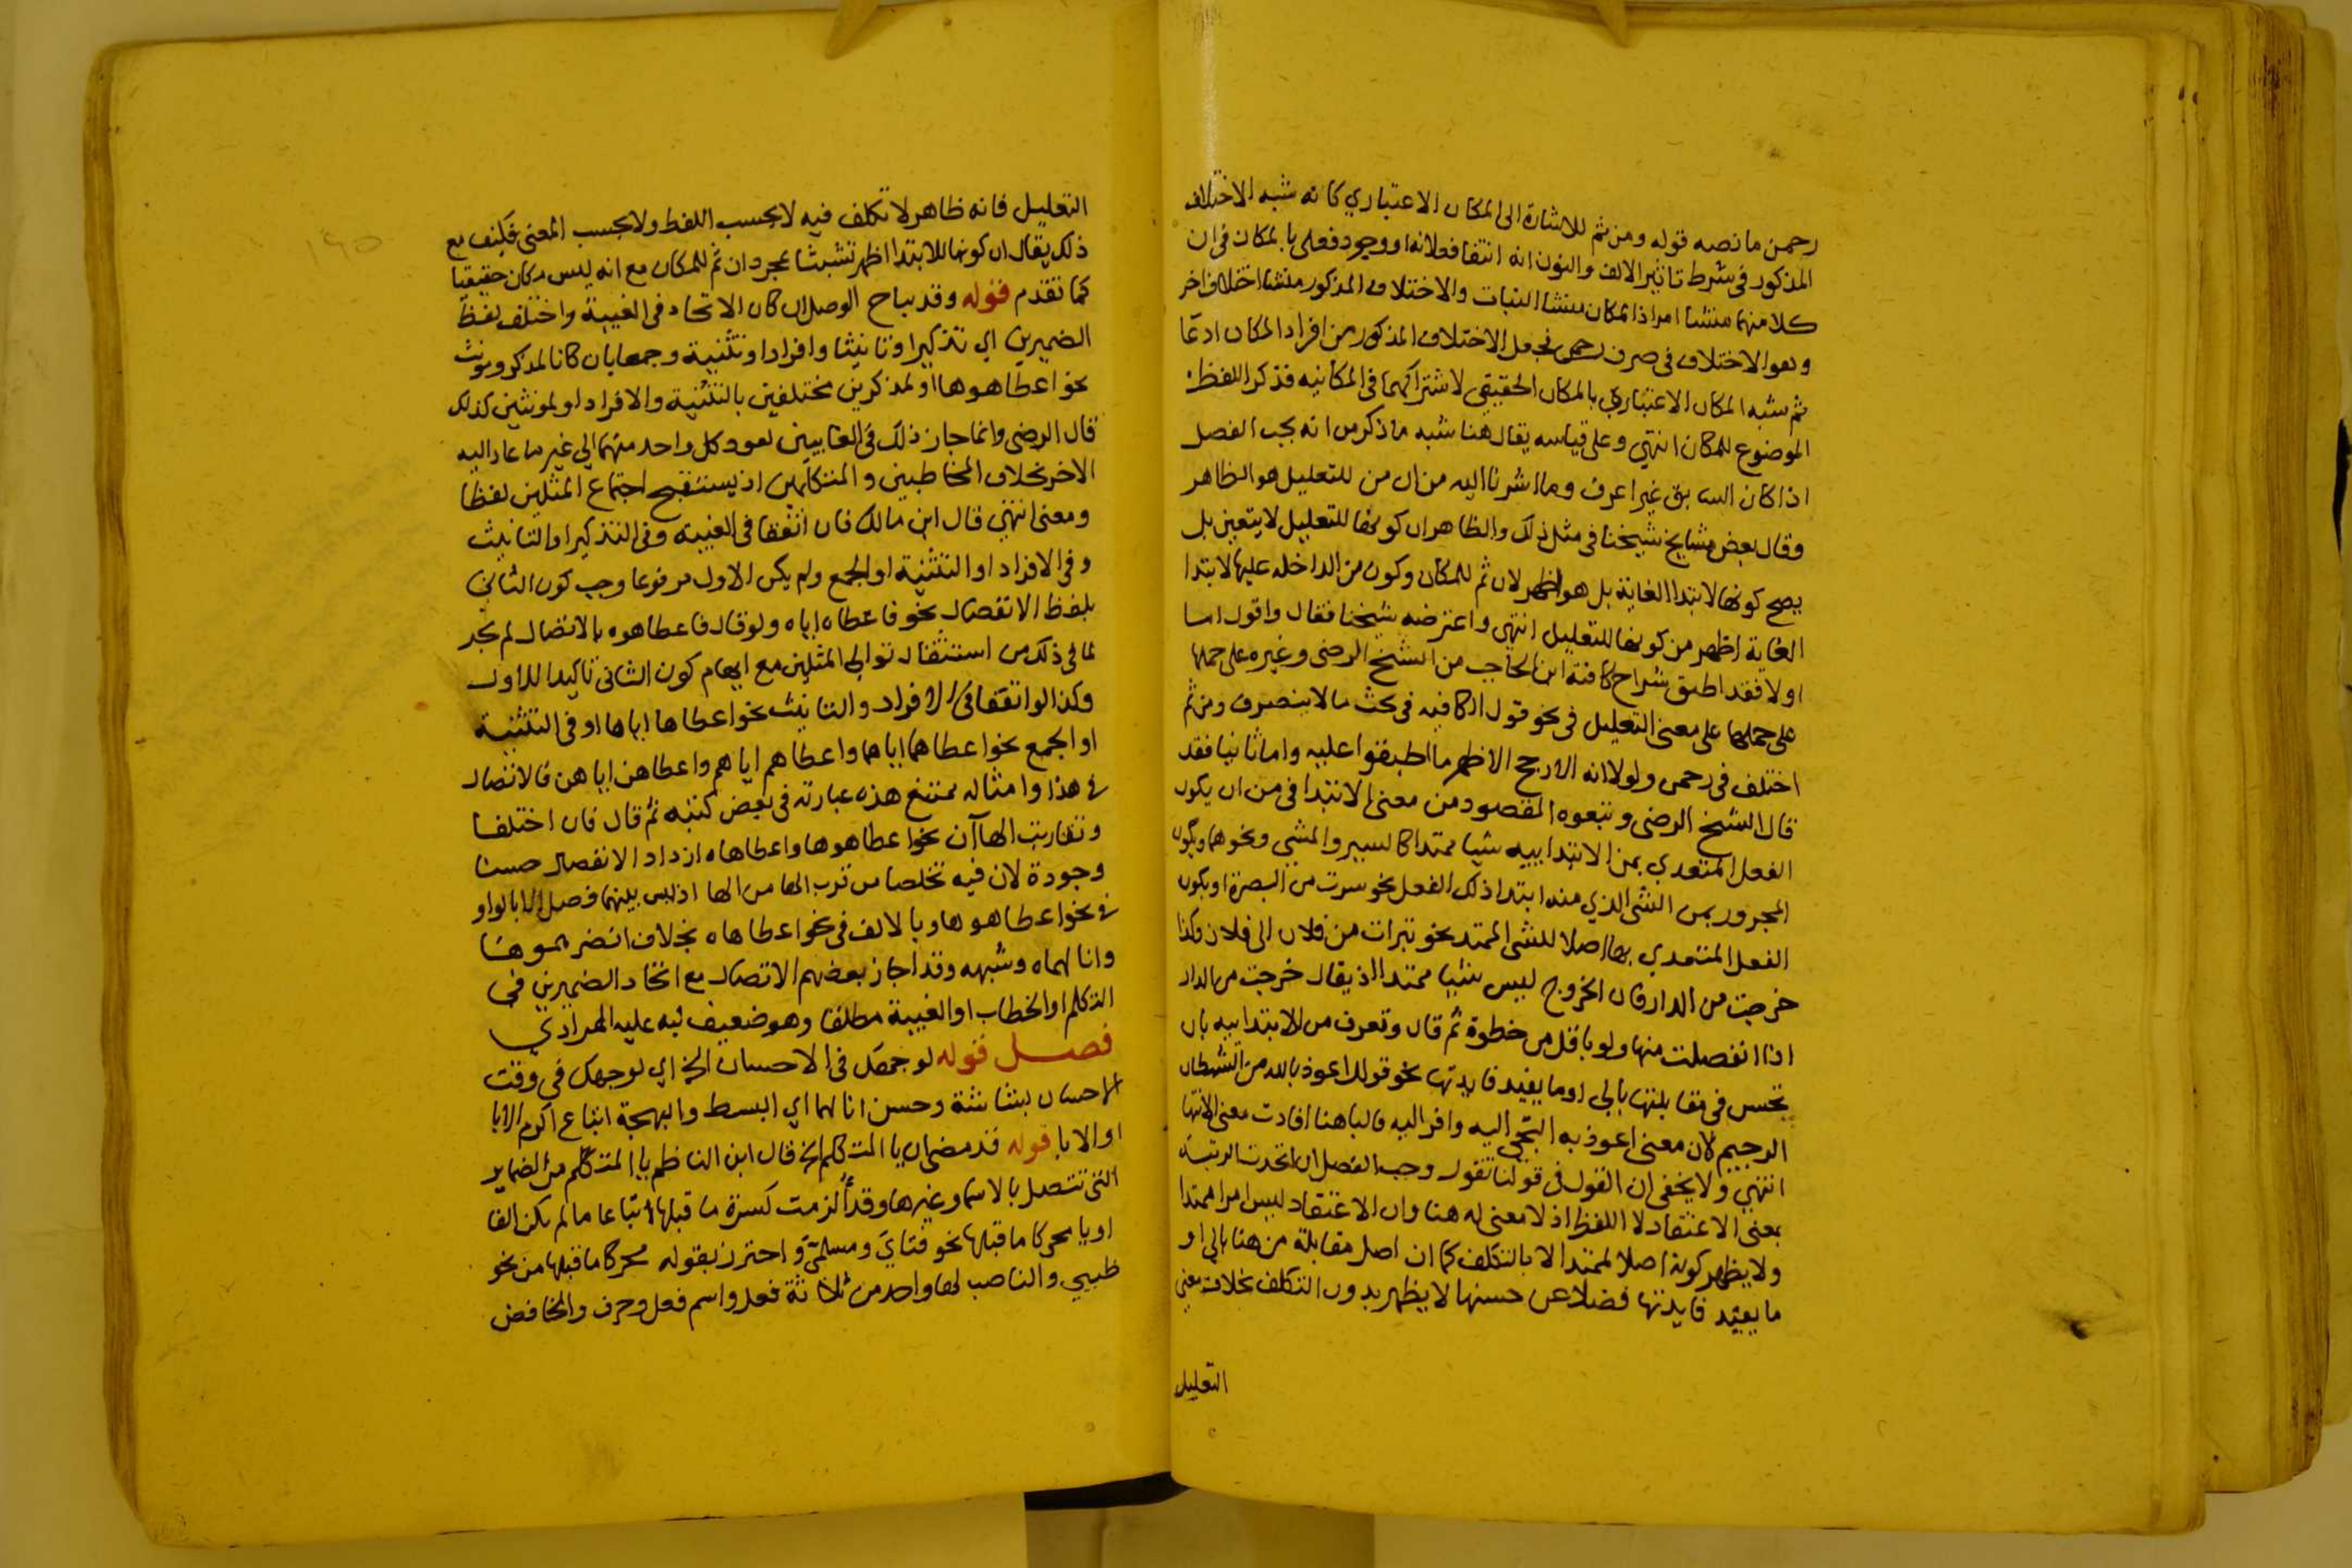 رحمن ما نصه قوله ومن ثم للاشارة الى المكان الاعتباري كانه شبه الاختلاف
المذكور في شرط تاثير الالف والنون انه انتفا فعلانه او وجود فعلى بالمكان في ان
كلا منهما منشا امر اذ المكان منشا النبات والاختلاف المذكور منشا اختلاف اخر
وهو الاختلاف في صرف رحمن فجعل الاختلاف المذكور من افراد المكان ادعا
ثم شبه المكان الاعتباري بالمكان الحقيقي لاشتراكهما في المكانيه فذكر اللفظ
الموضوع للمكان انتهى وعلى قياسه يقال هنا شبه ما ذكر من انه يجب الفصل
اذا كان السابق غير اعرف وما اشرنا اليه من ان من للتعليل هو الظاهر
وقال بعض مشايخ شيخنا في مثل ذلك والظاهر ان كونها للتعليل لا يتعين بل
يصح كونها لابتدا الغاية بل هو اظهر لان ثم للمكان وكون من الداخله عليها لابتدا
الغاية اظهر من كونها للتعليل انتهى واعترضه شيخنا فقال واقول اما
اولا فقد اطبق شراح كافية ابن الحاجب من الشيخ الرضى وغيره على حملها
على حملها على معنى التعليل في نحو قول الكافيه في بحث ما لا ينصرف ومن ثم
اختلف في رحمن ولولا انه الارجح الاظهر ما اطبقوا عليه واما ثانيا فقد
قال الشيخ الرضى وتبعوه المقصود من معنى الابتدا في من ان يكون
الفعل المتعدي بمن الابتداييه شيا ممتدا كالسير والمشي ونحوهما ويكون
المجرور بمن الشى الذي منه ابتدا ذلك الفعل نحو سرت من البصرة او يكون
الفعل المتعدي بها اصلا للشى الممتد نحو تبرات من فلان الى فلان وكذا
خرجت من الدار فان الخروج ليس شيا ممتدا اذ يقال خرجت من الدار
اذا انفصلت منها ولو باقل من خطوة ثم قال وتعرف من الابتداييه بان
تحسن في مقابلتها بالى او ما يفيد فايدتها نحو قولك اعوذ بالله من الشيطان
الرجيم لان معنى اعوذ به التجي اليه وافر اليه فالبا هنا افادت معنى الانتها
انتهى ولا يخفى ان القول في قولنا تقول وجب الفصل ان اتحدت الرتبة
بمعنى الاعتقاد لا اللفظ اذ لا معنى له هنا وان الاعتقاد ليس امرا ممتدا
ولا يظهر كونه اصلا لممتد الا بالتكلف كما ان اصل مقابلة من هنا بالى او
ما يفيد فايدتها فضلا عن حسنها لا يظهر بدون التكلف بخلاف معنى
التعليل
١٤٥
التعليل فانه ظاهر لا تكلف فيه لا بحسب اللفظ ولا بحسب المعنى فكيف مع
ذلك يقال ان كونها للابتدا اظهر تشبثا بمجرد ان ثم للمكان مع انه ليس مكان حقيقيا
كما تقدم قوله وقد يباح الوصل ان كان الاتحاد في الغيبة واختلف لفظ
الضميرين اي تذكيرا وتانيثا وافرادا وتثنية وجمعا بان كانا لمذكر ومونث
نحو اعطاهوها او لمذكرين مختلفين بالتثنية والافراد او لمونثين كذلك
قال الرضى وانما جاز ذلك في الغايبين لعود كل واحد منهما الى غير ما عاد اليه
الاخر بخلاف المخاطبين والمتكلمين اذ يستقبح اجتماع المثلين لفظا
ومعنى انتهى قال ابن مالك فان اتفقا في الغيبة وفي التذكير او التانيث
وفي الافراد او التثنية او الجمع ولم يكن الاول مرفوعا وجب كون الثاني
بلفظ الانفصال نحو فاعطاه اياه ولو قال فاعطاهوه بالاتصال لم يجز
لما في ذلك من استثقال توالي المثلين مع ايهام كون الثانى تاكيدا للاول
وكذا لو اتفقا في الافراد والتانيث نحو اعطاها اياها او في التثنية
او الجمع نحو اعطاهما اياهما واعطاهم اياهم واعطاهن اياهن فالاتصال
في هذا وامثاله ممتنع هذه عبارته في بعض كتبه ثم قال فان اختلفا
وتقاربت الهاآن نحو اعطاهوها واعطاهاه ازداد الانفصال حسنا
وجودة لان فيه تخلصا من قرب الها من الها اذ ليس بينهما فصل الا بالواو
في نحو اعطاهوها وبالالف في نحو اعطاهاه بخلاف انضرهموها
وانالهماه وشبهه وقد اجاز بعضهم الاتصال مع اتحاد الضميرين في
التكلم او الخطاب او الغيبة مطلقا وهو ضعيف نبه عليه المرادي
فصل قوله لوجهك في الاحسان الخ اي لوجهك في وقت
الاحسان بشاشة وحسن انالهما اي البسط والبهجة اتباع اكرم الابا
او الابا قوله قد مضى ان يا المتكلم الخ قال ابن الناظم يا المتكلم من الضماير
التي تتصل بالاسم وغيرها وقد الزمت كسرة ما قبلها اتباعا ما لم يكن الفا
او يا محركا ما قبلها نحو فتاي ومسلمي واحترز بقوله محركا ما قبلها من نحو
ظبيي والناصب لها واحد من ثلاثة فعل واسم فعل وحرف والخافض